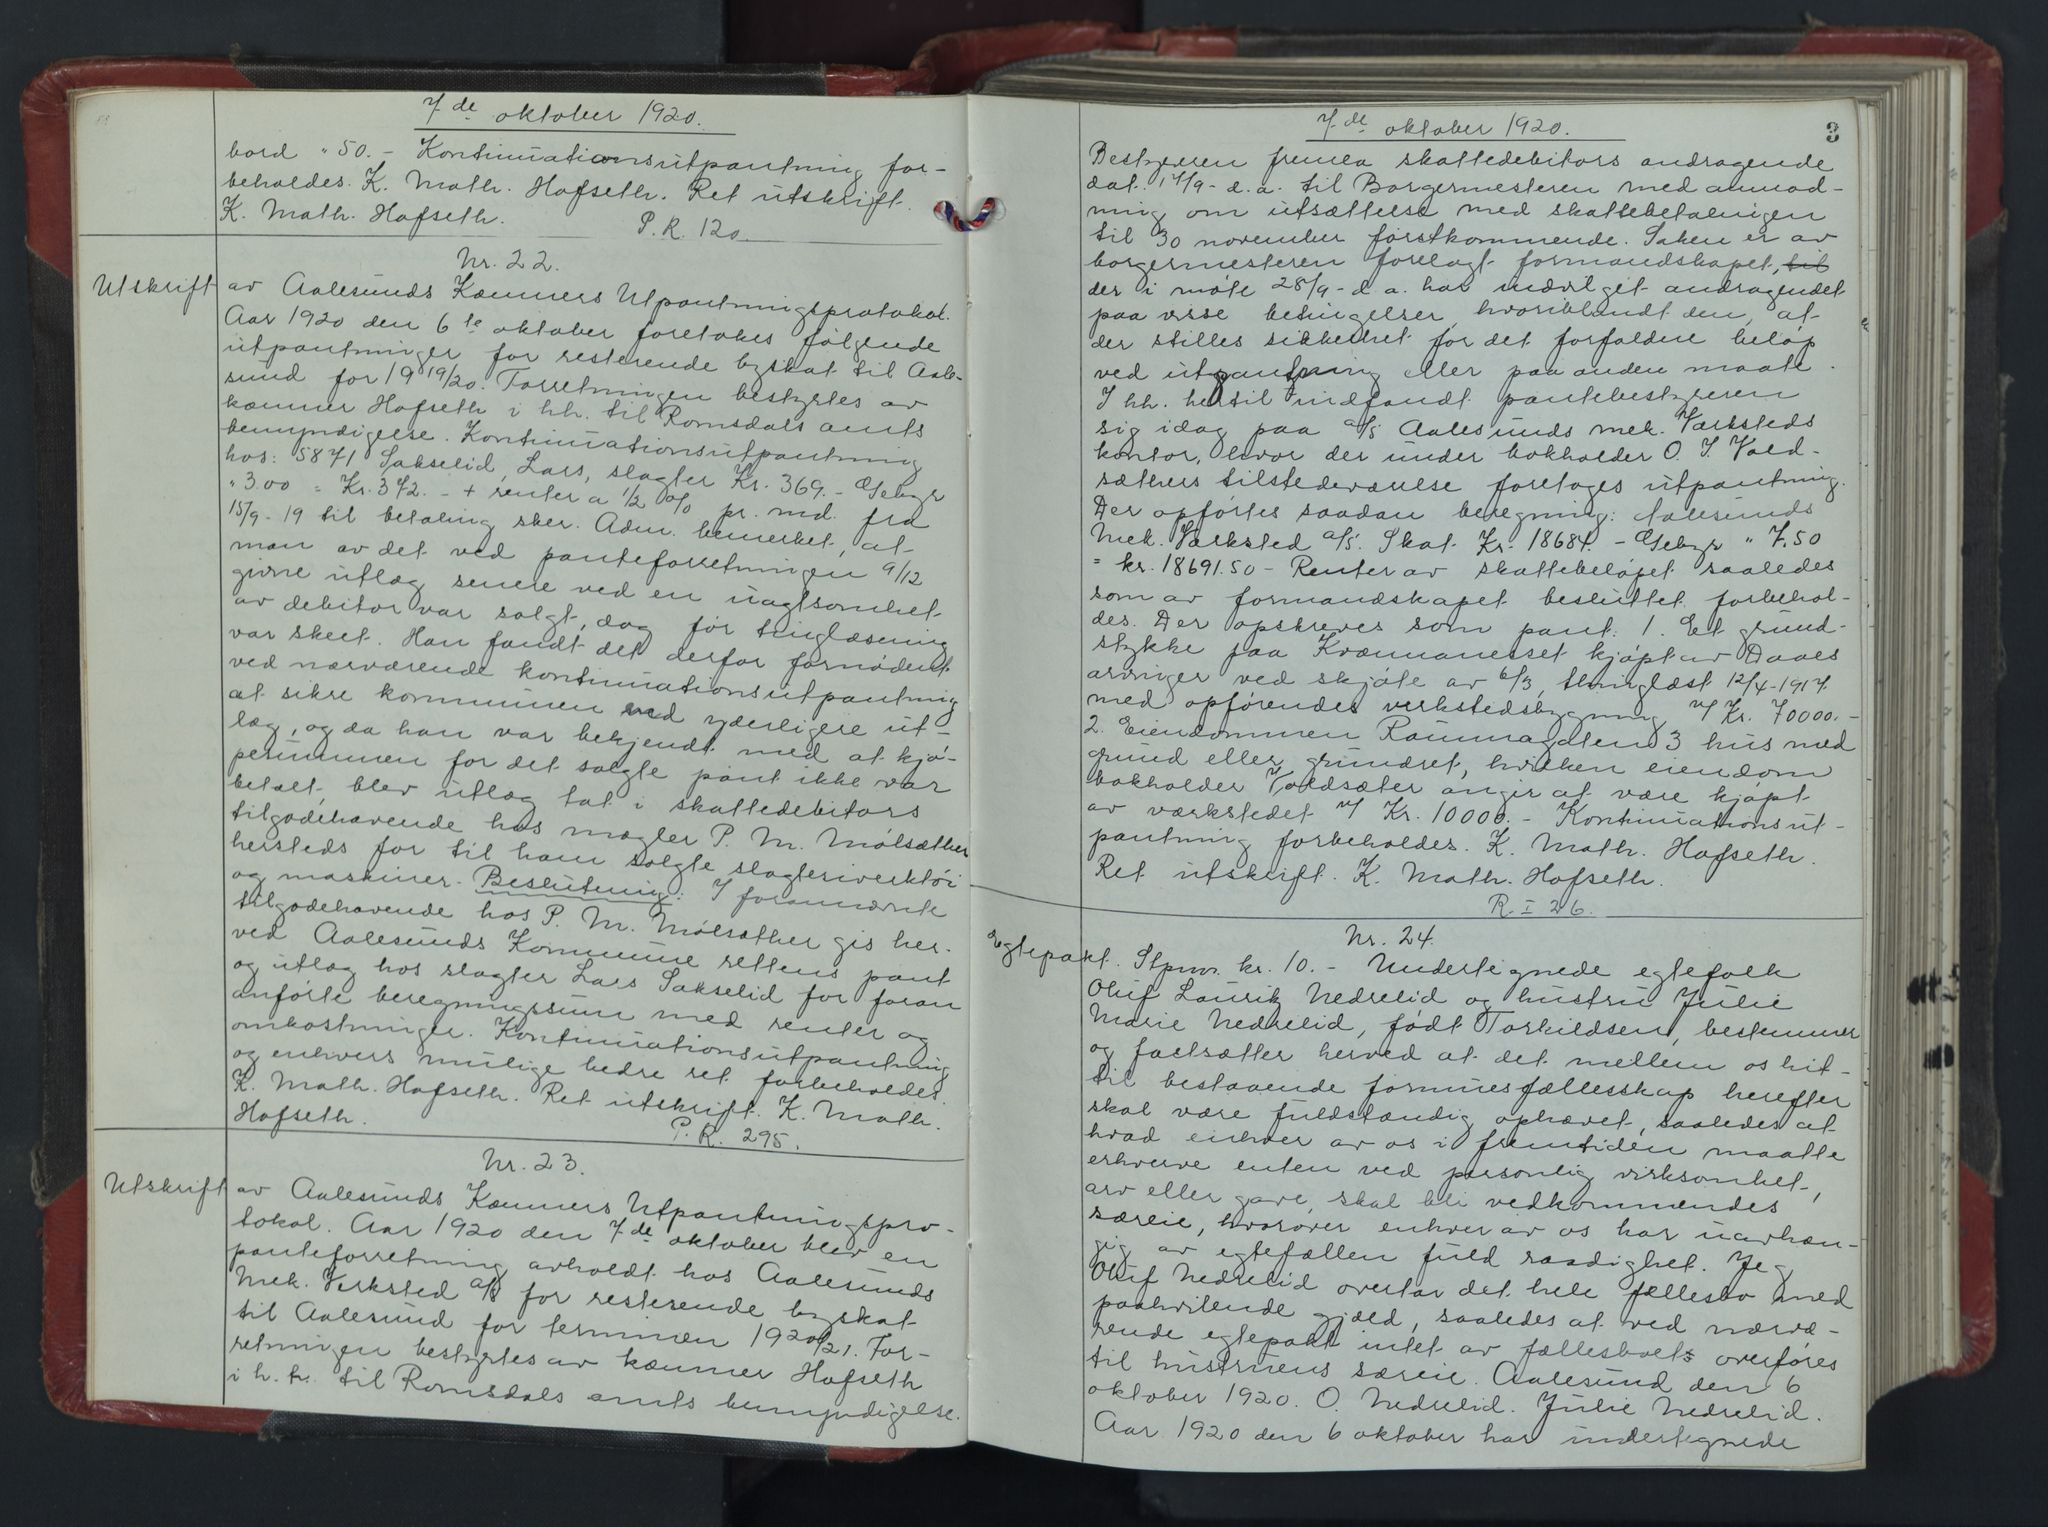 7de oktober 1920.
bord " 50.- Kontinuationsutpantning for-
beholdes. K. Math. Hofseth. Ret utskrift.
K. Math. Hofseth. P.R. 120.
Nr. 22.
Utskrift av Aalesunds Kæmners Utpantningsprotokol.
Aar 1920 den 6te oktober foretokes følgende
utpantninger for resterende byskat til Aale-
sund for 1919/20. Forretningen bestyrtes av
kæmner Hofseth i hh. til Romsdals amts
bemyndigelse. Kontinuationsutpantning
hos: 5871 Sakselid, Lars, slagter Kr. 369.- Gebyr
" 3.00 = Kr. 372.- + renter a 1/2 % pr. md. fra
15/9-19 til betaling sker. Adm. bemerket, at
man av det ved panteforretningen 9/12
givne utlæg senere ved en uagtsomhet
av debitor var solgt, dog før tinglæsning
var skeet. Han fandt det derfor fornødent
ved nærværende kontinuationsutpantning
at sikre kommunen ved yderligere ut-
læg, og da han var bekjendt med at kjø-
pesummen for det solgte pant ikke var
betalt, blev utlæg tat i skattedebitors
tilgodehavende hos mægler P. M. Mølsæther
hersteds for til ham solgte slagteriverktøi
og maskiner. Beslutning: I forannævnte
tilgodehavende hos P. M. Mølsæther gis her-
ved Aalesunds Kommune rettens pant
og utlæg hos slagter Lars Sakselid for foran
anførte beregningssum med renter og
omkostninger. Kontinuationsutpantning
og enhvers mulige bedre ret forbeholdes.
K. Math. Hofseth. Ret utskrift. K. Math.
Hofseth. P.R. 295.
Nr. 23.
Utskrift av Aalesunds Kæmners Utpantningspro-
tokol. Aar 1920 den 7de oktober blev en
panteforretning avholdt hos Aalesunds
Mek. Verksted a/s for resterende byskat
til Aalesund for terminen 1920/21. For-
retningen bestyrtes av kæmner Hofseth
i h. h. til Romsdals amts bemyndigelse.
7de oktober 1920. 3
Bestyreren fremla skattedebitors andragende
dat. 17/9- d.a. til Borgermesteren med anmod-
ning om utsættelse med skattebetalingen
til 30 november førstkommende. Saken er av
borgermesteren forelagt formandskapet, til
der i møte 28/9- d.a. har indvilget andragendet
paa visse betingelser hvoriblandt den, at
der stilles sikkerhet for det forfaldne beløp
ved utpantning eller paa anden maate.
I hh. hertil indfandt pantebestyreren
sig idag paa a/s Aalesunds mek. Værksteds
kontor, hvor der under bokholder O. I. Vold-
sæthers tilstedeværelse foretoges utpantning.
Der opførtes saadan beregning: Aalesunds
Mek. Værksted a/s. Skat Kr. 18684.- Gebyr " 7.50
= kr. 18691.50 - Renter av skattebeløpet saaledes
som av formandskapet besluttet forbehol-
des. Der opskreves som pant: 1. Et grund-
stykke paa Kvænnanesset kjøpt av Daaes
arvinger ved skjøte av 6/3, thinglæst 12/4-1917.
med opførendes verkstedsbygning v/ Kr. 70000.-
2. Eiendommen Raumagaten 3 hus med
grund eller grundret, hvilken eiendom
bokholder Voldsæter angir at være kjøpt
av værkstedet v/ Kr. 10000.- Kontinuationsut-
pantning forbeholdes. K. Math. Hofseth.
Ret utskrift. K. Math. Hofseth.
R. I 26.
Nr. 24.
Egtepakt. Stpm. kr. 10.- Undertegnede egtefolk
Oluf Lauritz Nedrelid og hustru Julie
Marie Nedrelid, født Torkildsen, bestemmer
og fastsætter herved at det mellem os hit-
til bestaaende formuesfællesskap herefter
skal være fuldstændig ophævet, saaledes at
hvad enhver av os i fremtiden maatte
erhverve enten ved personlig virksomhet,
arv eller gave, skal bli vedkommendes
særeie, hvorover enhver av os har uavhæn-
gig av egtefællen fuld raadighet. Jeg
Oluf Nedrelid overtar det hele fællesbo med
paahvilende gjæld, saaledes at ved nærvæ-
rende egtepakt intet av fællesboets overføres
til hustruens særeie. Aalesund den 6
oktober 1920. O. Nedrelid. Julie Nedrelid.
Aar 1920 den 6 oktober har undertegnede